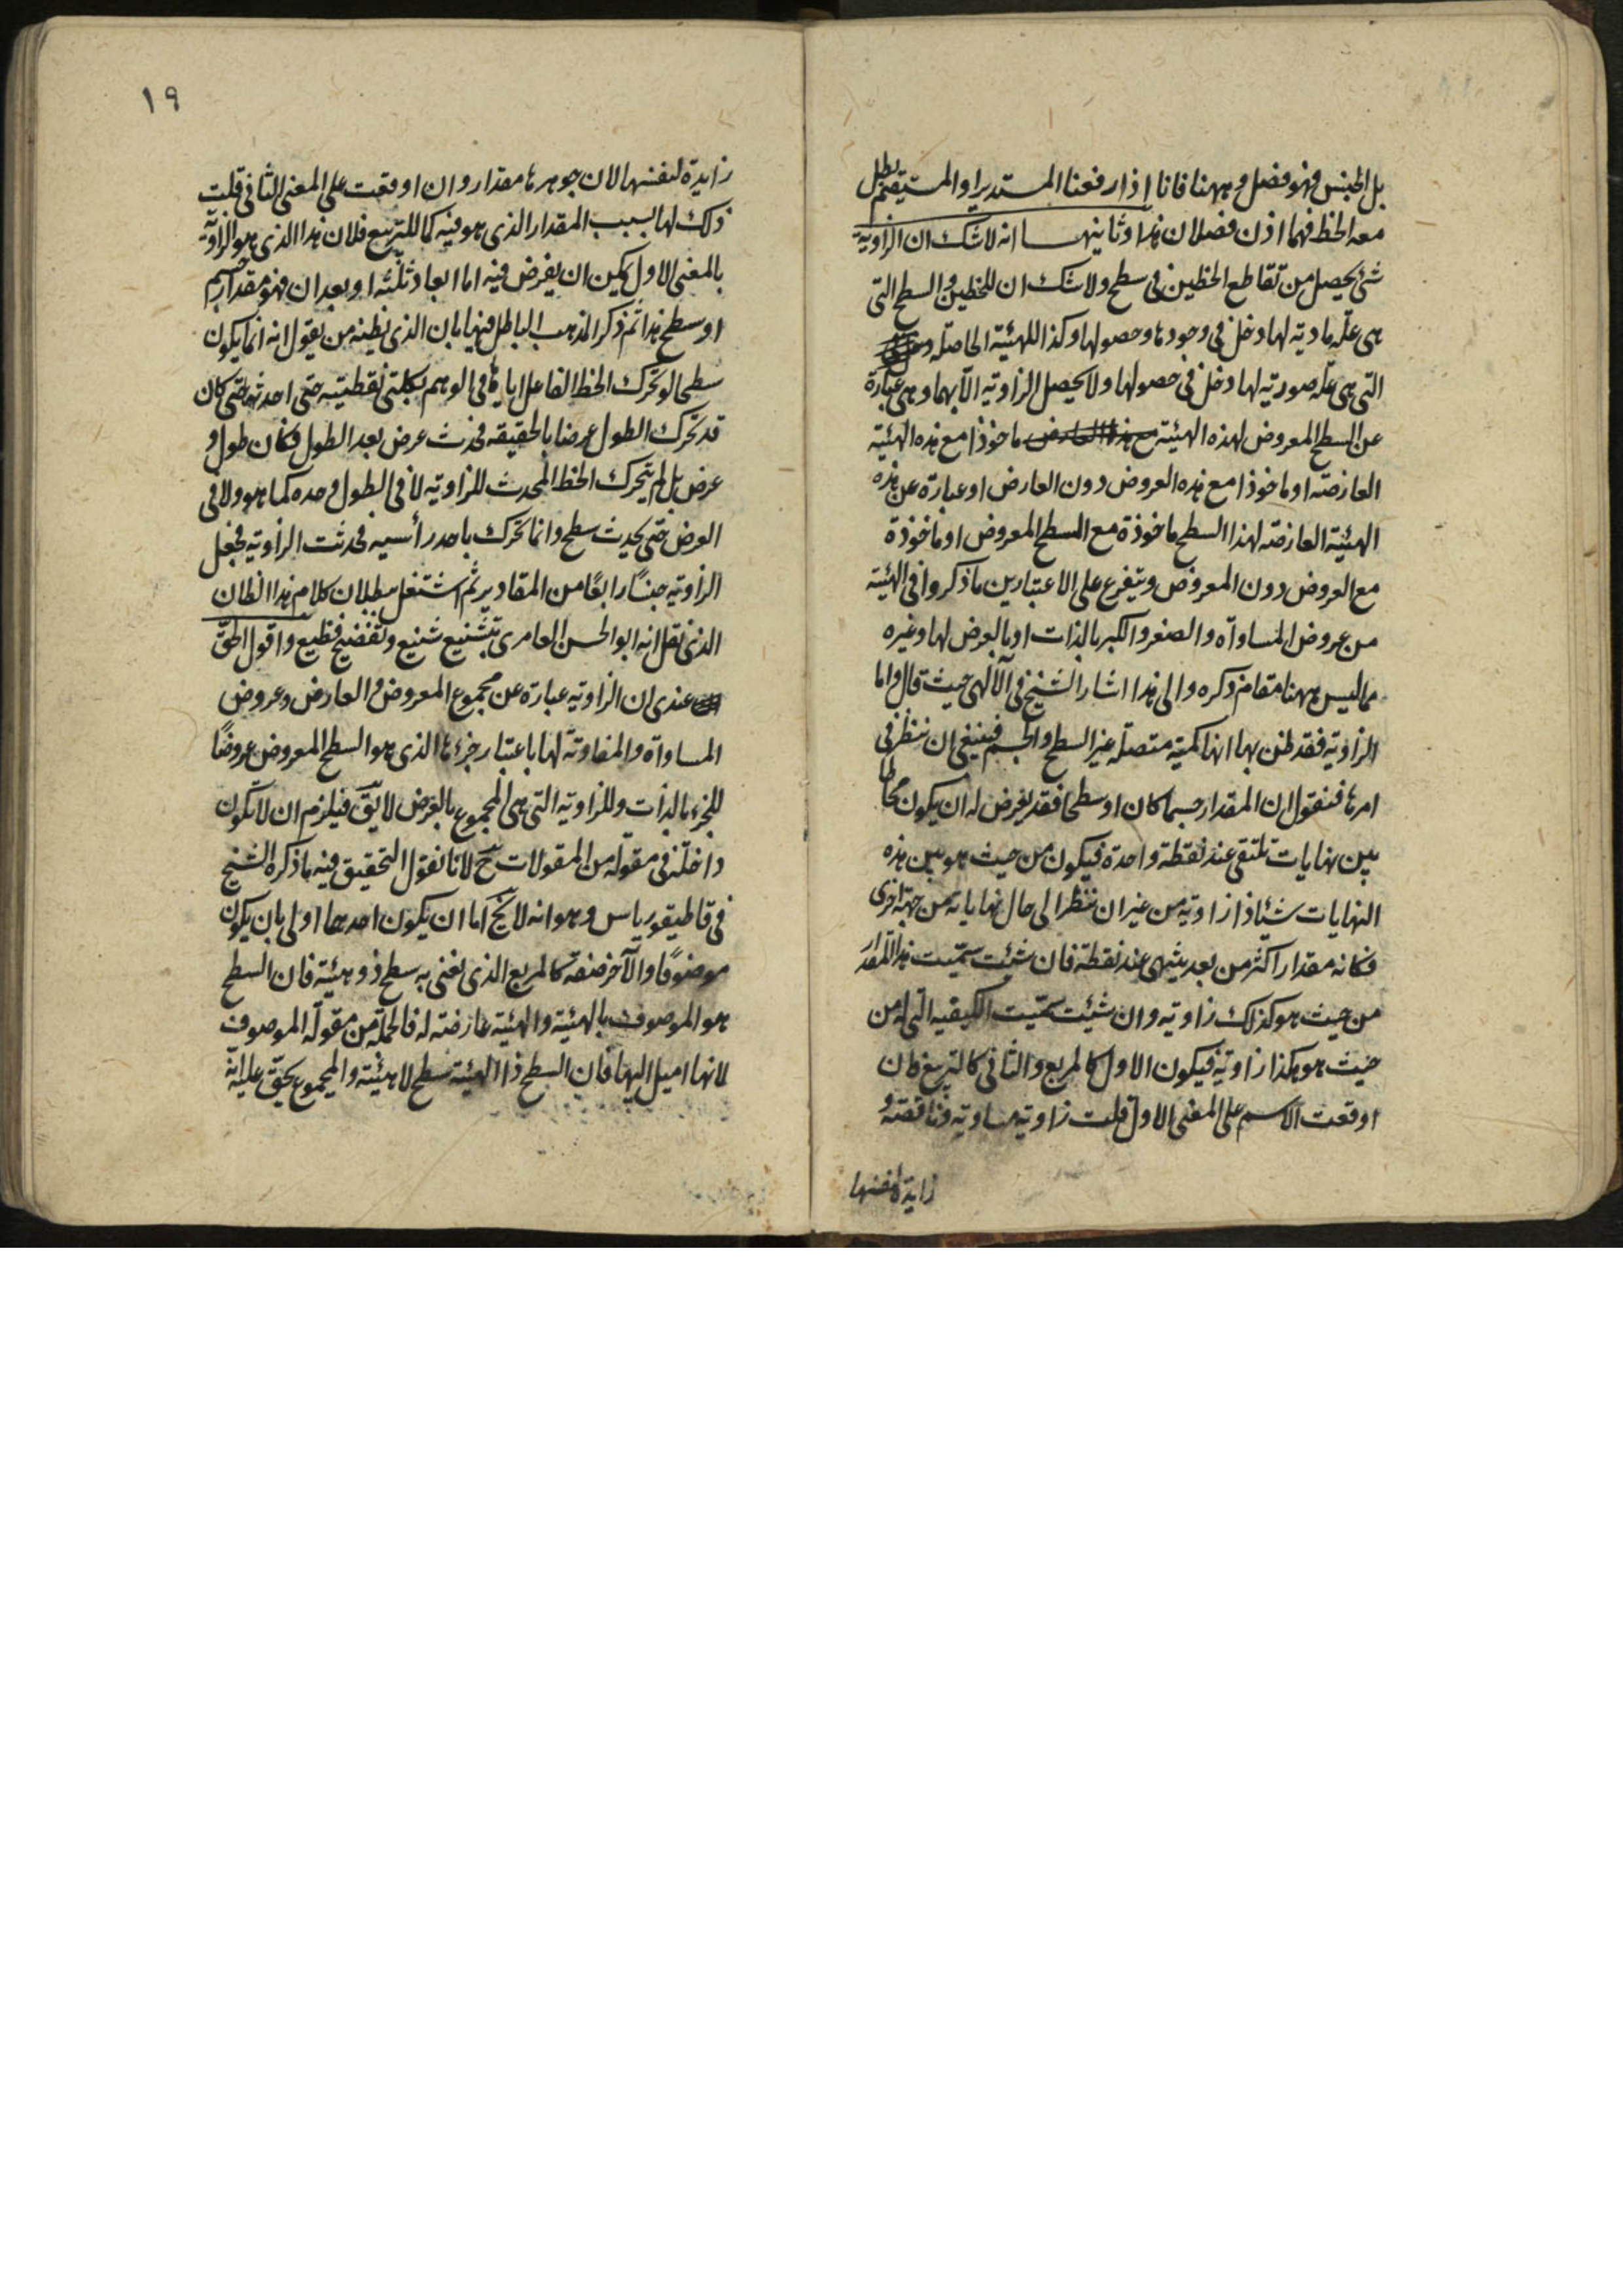 بل الجنس فهو فصل وههنا فانا اذا رفعنا المستدير او المستقيم بطل
معه الخط فهما اذن فصلان هذا وثانيهـــا انه لا شك ان الزاوية
شئ يحصل من تقاطع الخطين فى سطح ولا شك ان للخطين و السطح التى
هى علّة مادية لها دخل فى وجودها وحصولها وكذا للهيئة الحاصلة
التى هى علّة صورية لها دخل فى حصولها ولا يحصل الزاوية الّا بهما وهى عبارة
عن السطح المعروض لهذه الهيئة مع هذا العارض ماخوذا مع هذه الهيئة
العارضة او ماخوذا مع هذه العروض دون العارض او عبارة عن هذه
الهيئة العارضة لهذا السطح ماخوذة مع السطح المعروض او ماخوذة
مع العروض دون المعروض ويتفرع على الاعتبارين ما ذكروا فى الهيئة
من عروض المساواة والصغر والكبر بالذات او بالعرض لها وغيره
مما ليس ههنا مقام ذكره والى هذا اشار الشيخ فى الآلهى حيث قال واما
الزاوية فقد ظن بها انها كمية متصلة غير السطح والجسم فينبغى ان ننظر فى
امرها فنقول ان المقدار جسما كان او سطحا فقد يعرض له ان يكون محاطا
بين نهايات تلتقى عند نقطة واحدة فيكون من حيث هو بين هذه
النهايات شيئا ذا زاوية من غير ان ننظر الى حال نهاياته من جهة اخرى
فكانه مقدار اكثر من بعد ينتهى عند نقطة فان شئت سمّيت هذا المقدار
من حيث هو كذلك زاوية وان شئت سمّيت الكيفية التى له من
حيث هو هكذا زاوية فيكون الاول كالمربع والثانى كالتربيع فان
اوقعت الاسم على المعنى الاول قلت زاوية مساوية وناقصة و
زايدة لنفسها
١٩
زايدة لنفسها لان جوهرها مقدار وان اوقعت على المعنى الثانى قلت
ذلك لها بسبب المقدار الذى هو فيه كما للتربيع فلان هذا الذى هو الزاوية
بالمعنى الاول يمكن ان يفرض فيه اما ابعاد ثلثة او بعدان فهو مقدار جسم
او سطح هذا ثم ذكر المذهب الباطل فيها بان الذى يظنه من يقول انه انما يكون
سطحا لو تحرك الخط الفاعل اياها فى الوهم بكلتى نقطتيه حتى احدثها حتى كان
قد تحرك الطول عرضا بالحقيقة فحدث عرض بعد الطول فكان طول و
عرض بل لم يتحرك الخط المحدث للزاوية لا فى الطول وحده كما هو ولا فى
العرض حتى يحدث سطح وانما تحرك باحد رأسيه فحدثت الزاوية فجعل
الزاوية جنسًا رابعًا من المقادير ثم اشتغل ببطلان كلام هذا الظان
الذى نقل انه ابو الحسن العامرى بتشنيع شنيع وتفضيح فظيع واقول الحقّ
عندى ان الزاوية عبارة عن مجموع المعروض و العارض وعروض
المساواة والمفاوتة لها باعتبار جزءها الذى هو السطح المعروض عروضًا
للجزء بالذات وللزاوية التى هى المجموع بالعرض لا يقّ فيلزم ان لا تكون
داخلة فى مقولة من المقولات حّ لانا نقول التحقيق فيه ما ذكره الشيخ
فى قاطيغورياس وهو انه لا يخ اما ان يكون احدهما اولى بان يكون
موضوعًا والآخر صفة كالمربع الذى نعنى به سطح ذو هيئة فان السطح
هو الموصوف بالهيئة والهيئة عارضة له فالجملة من مقولة الموصوف
لانها اميل اليها فان السطح ذا الهيئة سطح لا هيئة والمجموع يحقّ عليه انه